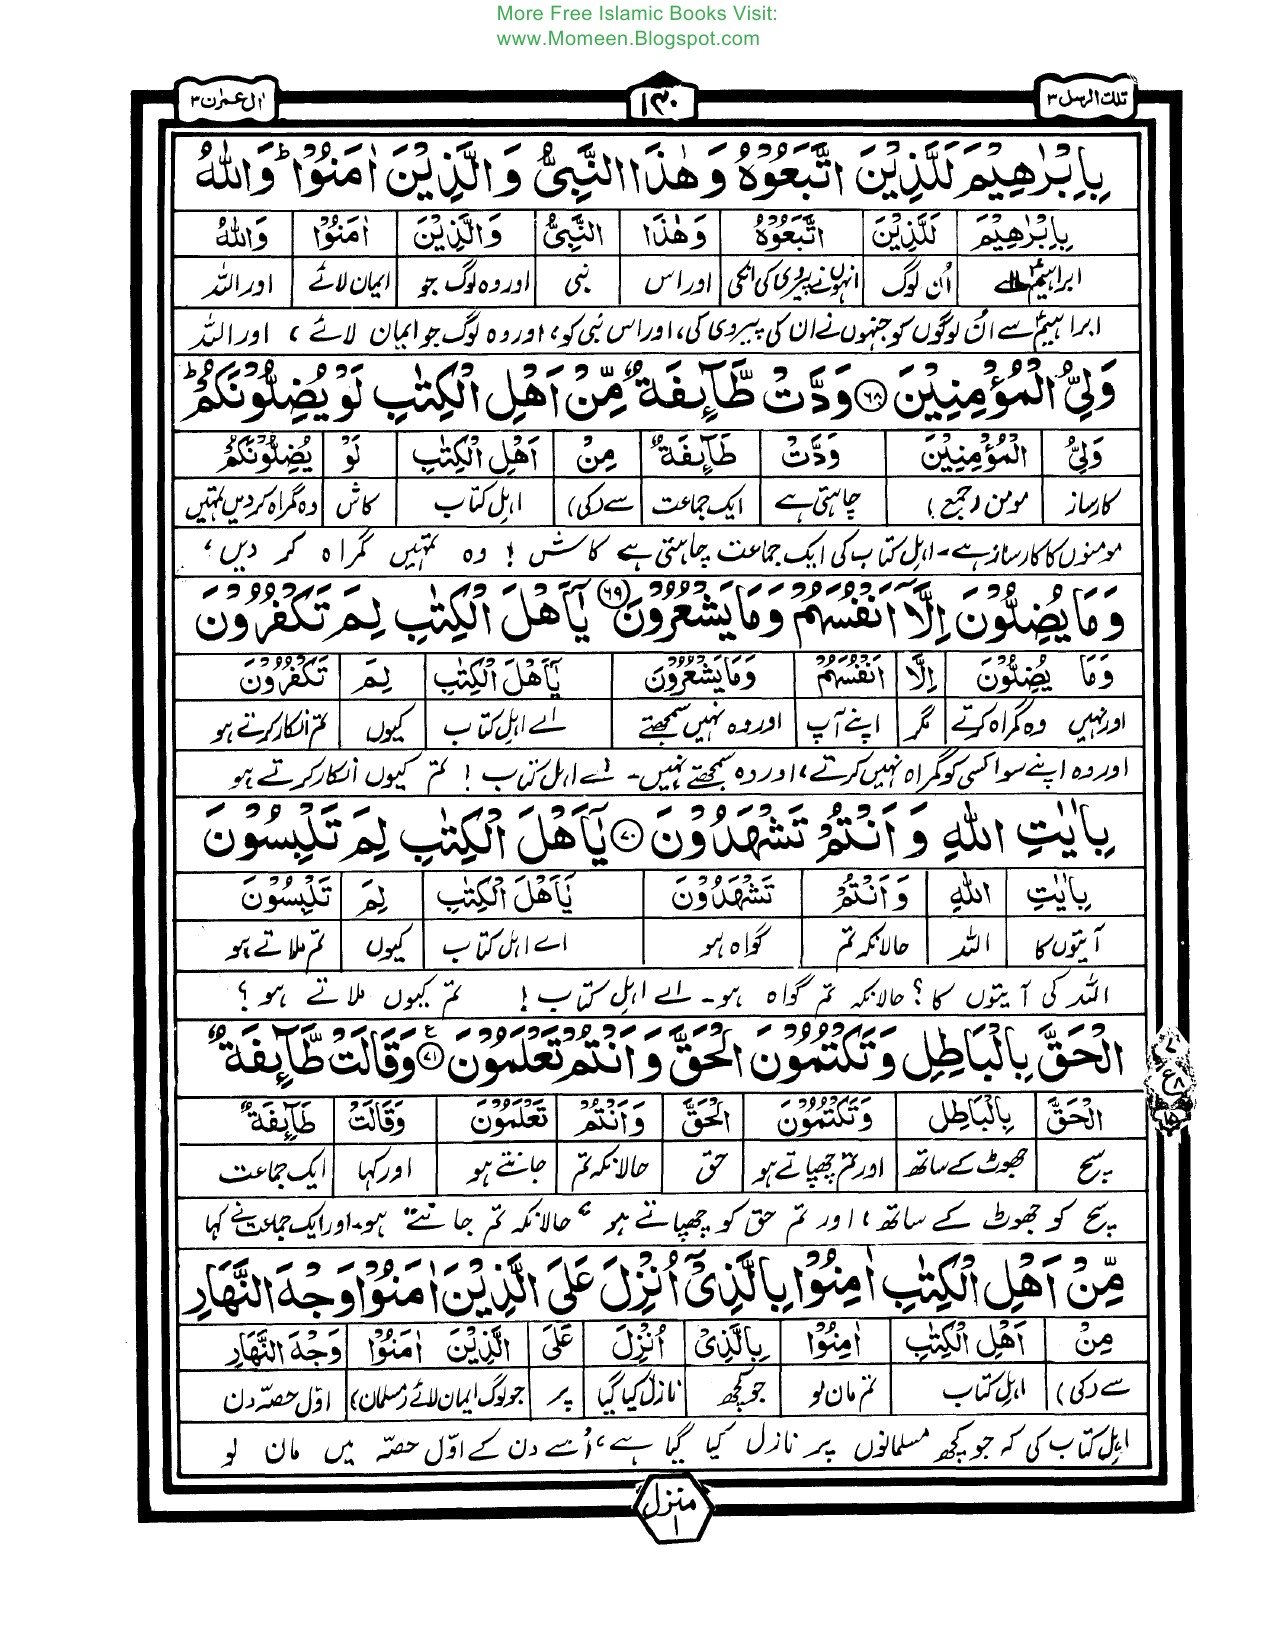 More Free Islamic Books Visit:
www.Momeen.Blogspot.com
تلك الرسل ۳
۱۳۰
اٰل عمرٰن ۳
بِاِبْرٰهِيْمَ لَلَّذِيْنَ اتَّبَعُوْهُ وَهٰذَا النَّبِىُّ وَالَّذِيْنَ اٰمَنُوْا ؕ وَاللّٰهُ
بِاِبْرٰهِيْمَ لَلَّذِيْنَ اتَّبَعُوْهُ وَهٰذَا النَّبِىُّ وَالَّذِيْنَ اٰمَنُوْا وَاللّٰهُ
ابراہیمؑ سے اُن لوگ انہوں نے پیروی کی انکی اور اس نبی اور وہ لوگ جو ایمان لائے اور اللہ
ابراہیمؑ سے اُن لوگوں کو جنہوں نے ان کی پیروی کی، اور اس نبی کو، اور وہ لوگ جو ایمان لائے، اور اللہ
وَلِىُّ الْمُؤْمِنِيْنَ ۶۸ وَدَّتْ طَّآئِفَةٌ مِّنْ اَهْلِ الْكِتٰبِ لَوْ يُضِلُّوْنَكُمْ ؕ
وَلِىُّ الْمُؤْمِنِيْنَ وَدَّتْ طَآئِفَةٌ مِنْ اَهْلِ الْكِتٰبِ لَوْ يُضِلُّوْنَكُمْ
کارساز مومن (جمع) چاہتی ہے ایک جماعت سے (کی) اہل کتاب کاش وہ گمراہ کر دیں تمہیں
مومنوں کا کارساز ہے۔ اہل کتاب کی ایک جماعت چاہتی ہے کاش! وہ تمہیں گمراہ کر دیں،
وَمَا يُضِلُّوْنَ اِلَّاۤ اَنْفُسَهُمْ وَمَا يَشْعُرُوْنَ ۶۹ يٰٓاَهْلَ الْكِتٰبِ لِمَ تَكْفُرُوْنَ
وَمَا يُضِلُّوْنَ اِلَّا اَنْفُسَهُمْ وَمَا يَشْعُرُوْنَ يٰٓاَهْلَ الْكِتٰبِ لِمَ تَكْفُرُوْنَ
اور نہیں وہ گمراہ کرتے مگر اپنے آپ اور وہ نہیں سمجھتے اے اہل کتاب کیوں تم انکار کرتے ہو
اور وہ اپنے سوا کسی کو گمراہ نہیں کرتے، اور وہ سمجھتے نہیں۔ اے اہل کتاب! تم کیوں انکار کرتے ہو
بِاٰيٰتِ اللّٰهِ وَاَنْتُمْ تَشْهَدُوْنَ ۷۰ يٰٓاَهْلَ الْكِتٰبِ لِمَ تَلْبِسُوْنَ
بِاٰيٰتِ اللّٰهِ وَاَنْتُمْ تَشْهَدُوْنَ يٰٓاَهْلَ الْكِتٰبِ لِمَ تَلْبِسُوْنَ
آیتوں کا اللہ حالانکہ تم گواہ ہو اے اہل کتاب کیوں تم ملاتے ہو
اللہ کی آیتوں کا؟ حالانکہ تم گواہ ہو۔ اے اہل کتاب! تم کیوں ملاتے ہو؟
الْحَقَّ بِالْبَاطِلِ وَتَكْتُمُوْنَ الْحَقَّ وَاَنْتُمْ تَعْلَمُوْنَ ۷۱ ع وَقَالَتْ طَّآئِفَةٌ
۷
ع ۸
۱۵
الْحَقَّ بِالْبَاطِلِ وَتَكْتُمُوْنَ الْحَقَّ وَاَنْتُمْ تَعْلَمُوْنَ وَقَالَتْ طَآئِفَةٌ
سچ جھوٹ کے ساتھ اور تم چھپاتے ہو حق حالانکہ تم جانتے ہو اور کہا ایک جماعت
سچ کو جھوٹ کے ساتھ، اور تم حق کو چھپاتے ہو، حالانکہ تم جانتے ہو۔ اور ایک جماعت نے کہا
مِّنْ اَهْلِ الْكِتٰبِ اٰمِنُوْا بِالَّذِىْۤ اُنْزِلَ عَلَى الَّذِيْنَ اٰمَنُوْا وَجْهَ النَّهَارِ
مِنْ اَهْلِ الْكِتٰبِ اٰمِنُوْا بِالَّذِىْ اُنْزِلَ عَلَى الَّذِيْنَ اٰمَنُوْا وَجْهَ النَّهَارِ
سے (کی) اہل کتاب تم مان لو جو کچھ نازل کیا گیا پر جو لوگ ایمان لائے (مسلمان) اوّل حصّہ دن
اہل کتاب کی کہ جو کچھ مسلمانوں پر نازل کیا گیا ہے، اُسے دن کے اوّل حصّہ میں مان لو
منزل
۱